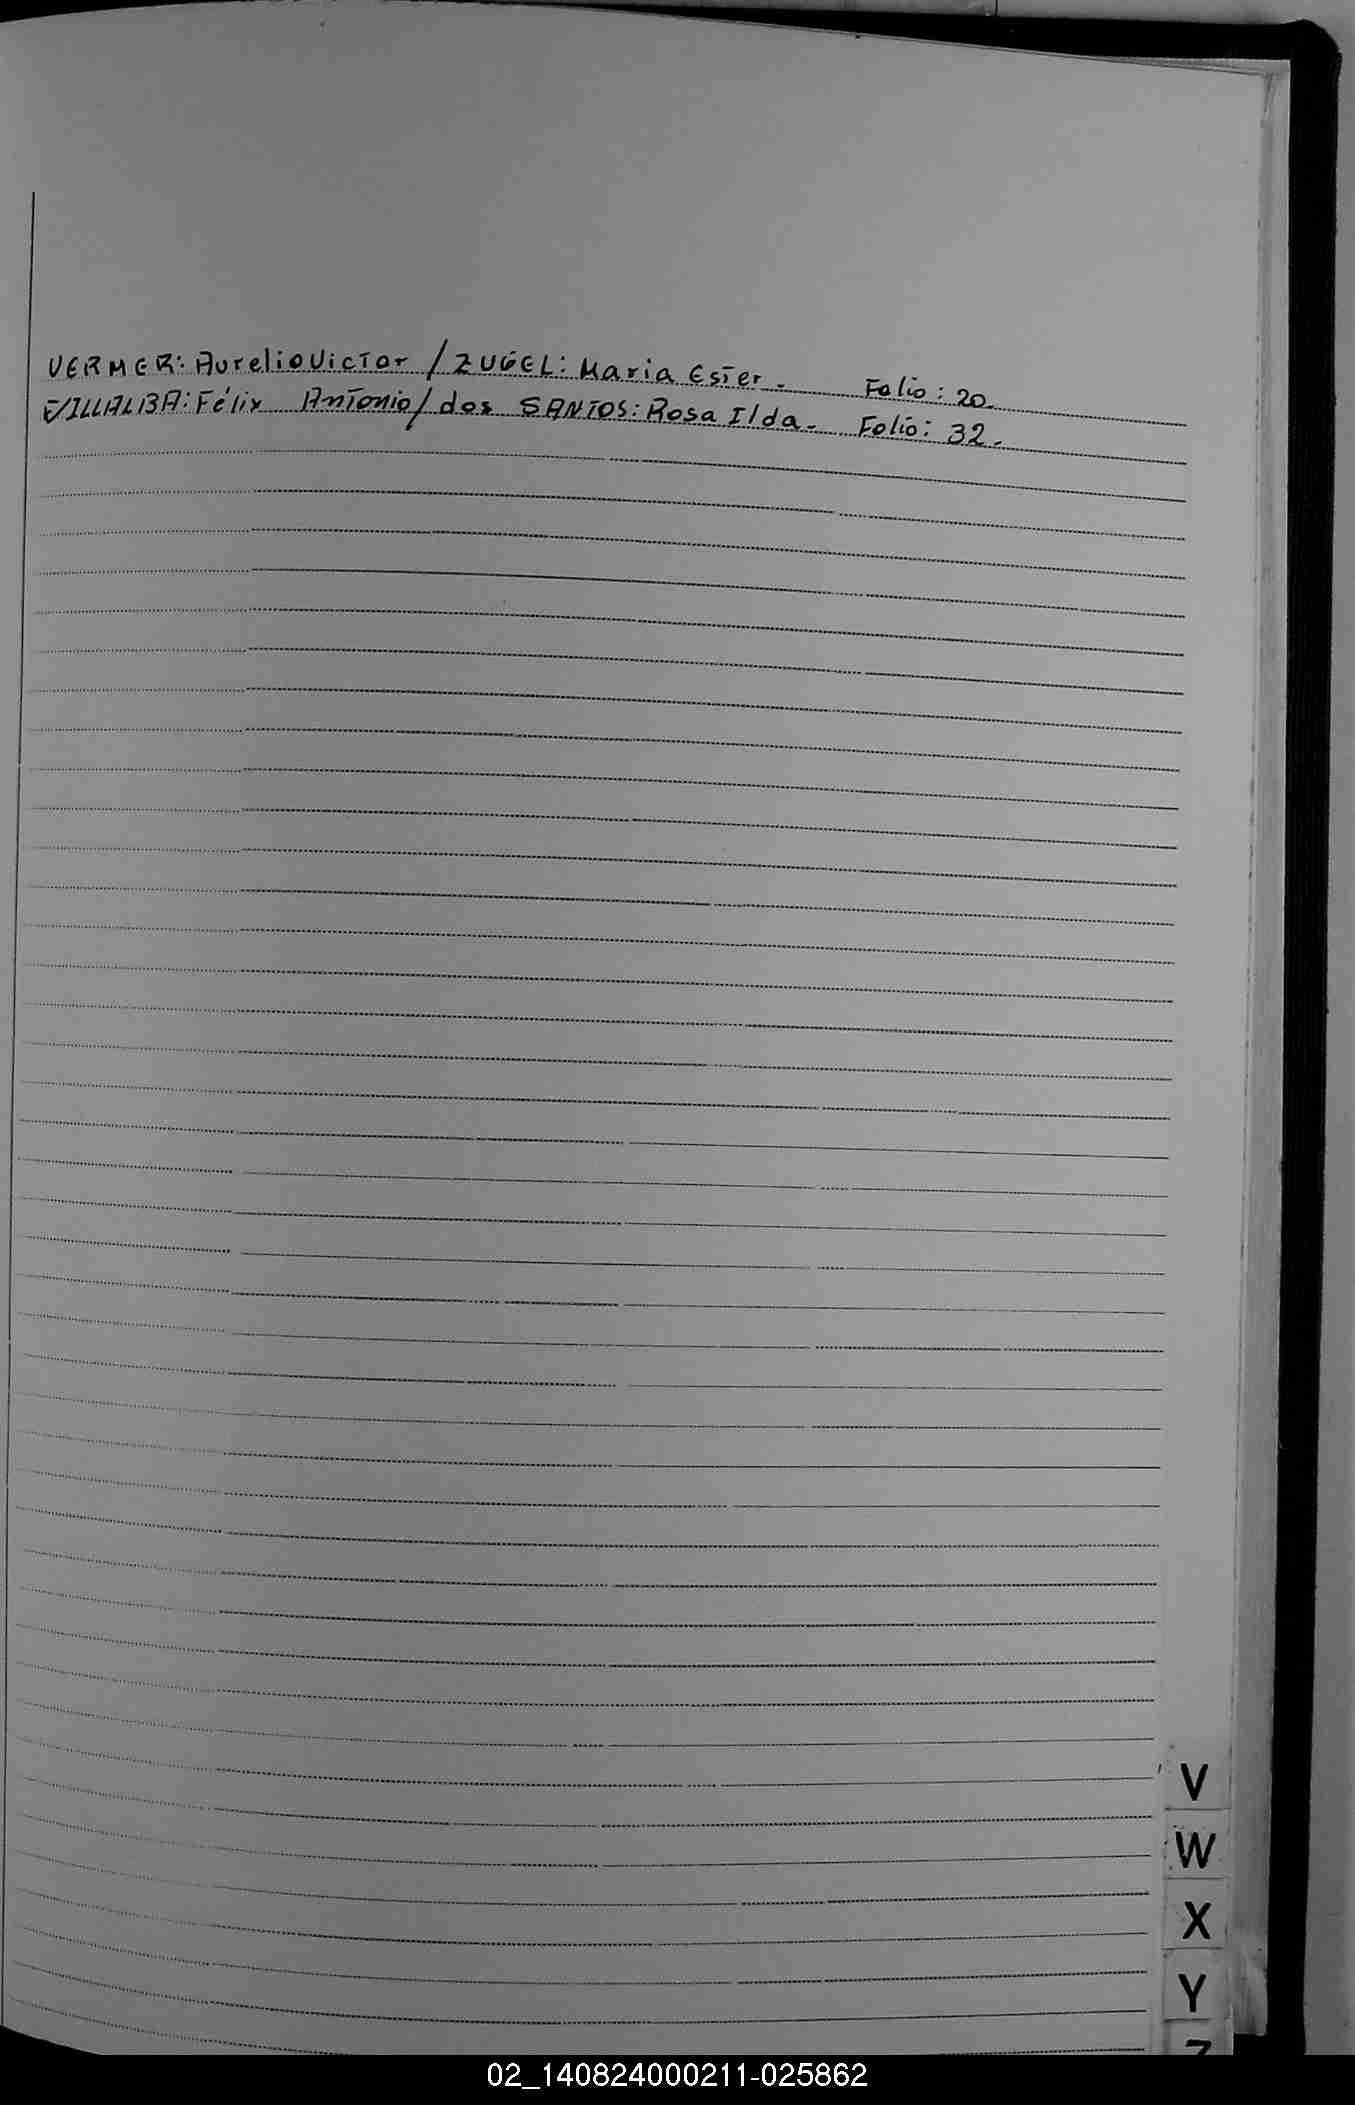 VERMER: Aurelio Victor / ZUGEL: Maria Ester. Folio: 20.
VILLALBA: Félix Antonio / dos SANTOS: Rosa Ilda. Folio: 32.
V
W
X
Y
Z
02_140824000211-025862